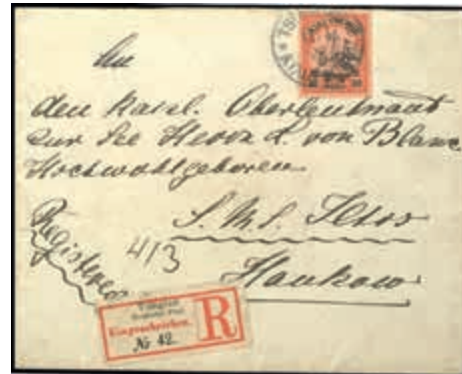 An
den Kaisl. Oberleutnant
zur See Herrn L. von Blanc
Hochwohlgeboren
S.M.S.
Hankow
Registered
413
Einschreiben.
R
№ 42.